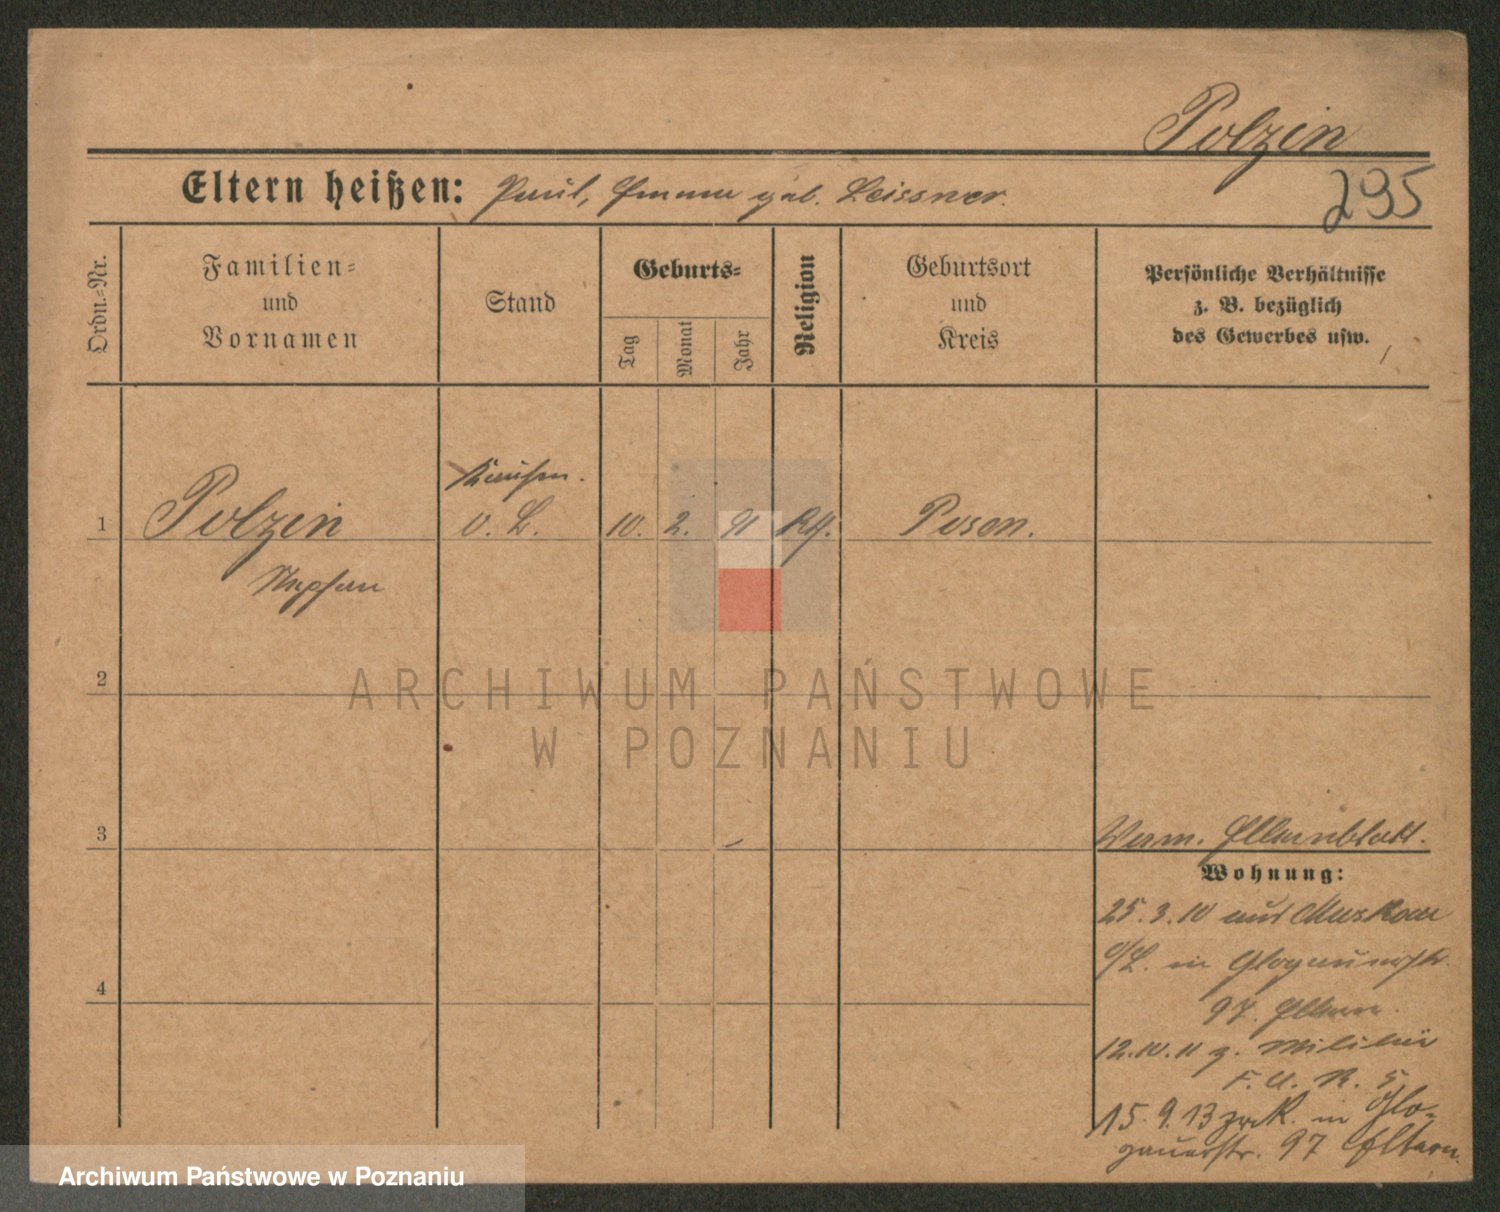 Polzin
Eltern heißen: Paul, Emma geb. Leissner.
295
Ordn.=Nr.
Familien=
und
Vornamen
Stand
Geburts=
Tag
Monat
Jahr
Religion
Geburtsort
und
Kreis
Persönliche Verhältnisse
z. B. bezüglich
des Gewerbes usw.
1
Polzin
Stephan
Kaufm.
v. L.
10.
2.
91
Posen.
2
3
4
Verm. Elternblatt.
Wohnung:
25.3.10 aus Muskau
O/L. in Glogauerstr.
97. Eltern.
12.10.11 z. Militär
F. A. R. 5
15.9.13 zurk. in Glo-
gauerstr. 97 Eltern.
ARCHIWUM PAŃSTWOWE
W POZNANIU
Archiwum Państwowe w Poznaniu